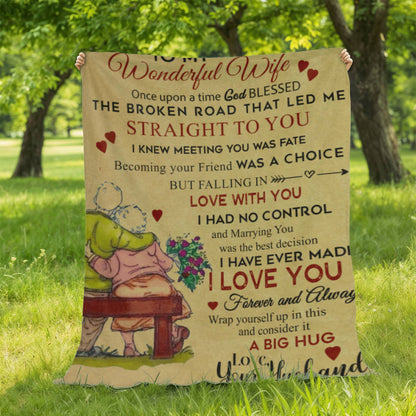 TO MY
Wonderful Wife
Once upon a time God BLESSED
THE BROKEN ROAD THAT LED ME
STRAIGHT TO YOU
I KNEW MEETING YOU WAS FATE
Becoming your Friend WAS A CHOICE
BUT FALLING IN
LOVE WITH YOU
I HAD NO CONTROL
and Marrying You
was the best decision
I HAVE EVER MADE
I LOVE YOU
Forever and Always
Wrap yourself up in this
and consider it
A BIG HUG
Love,
Your Husband